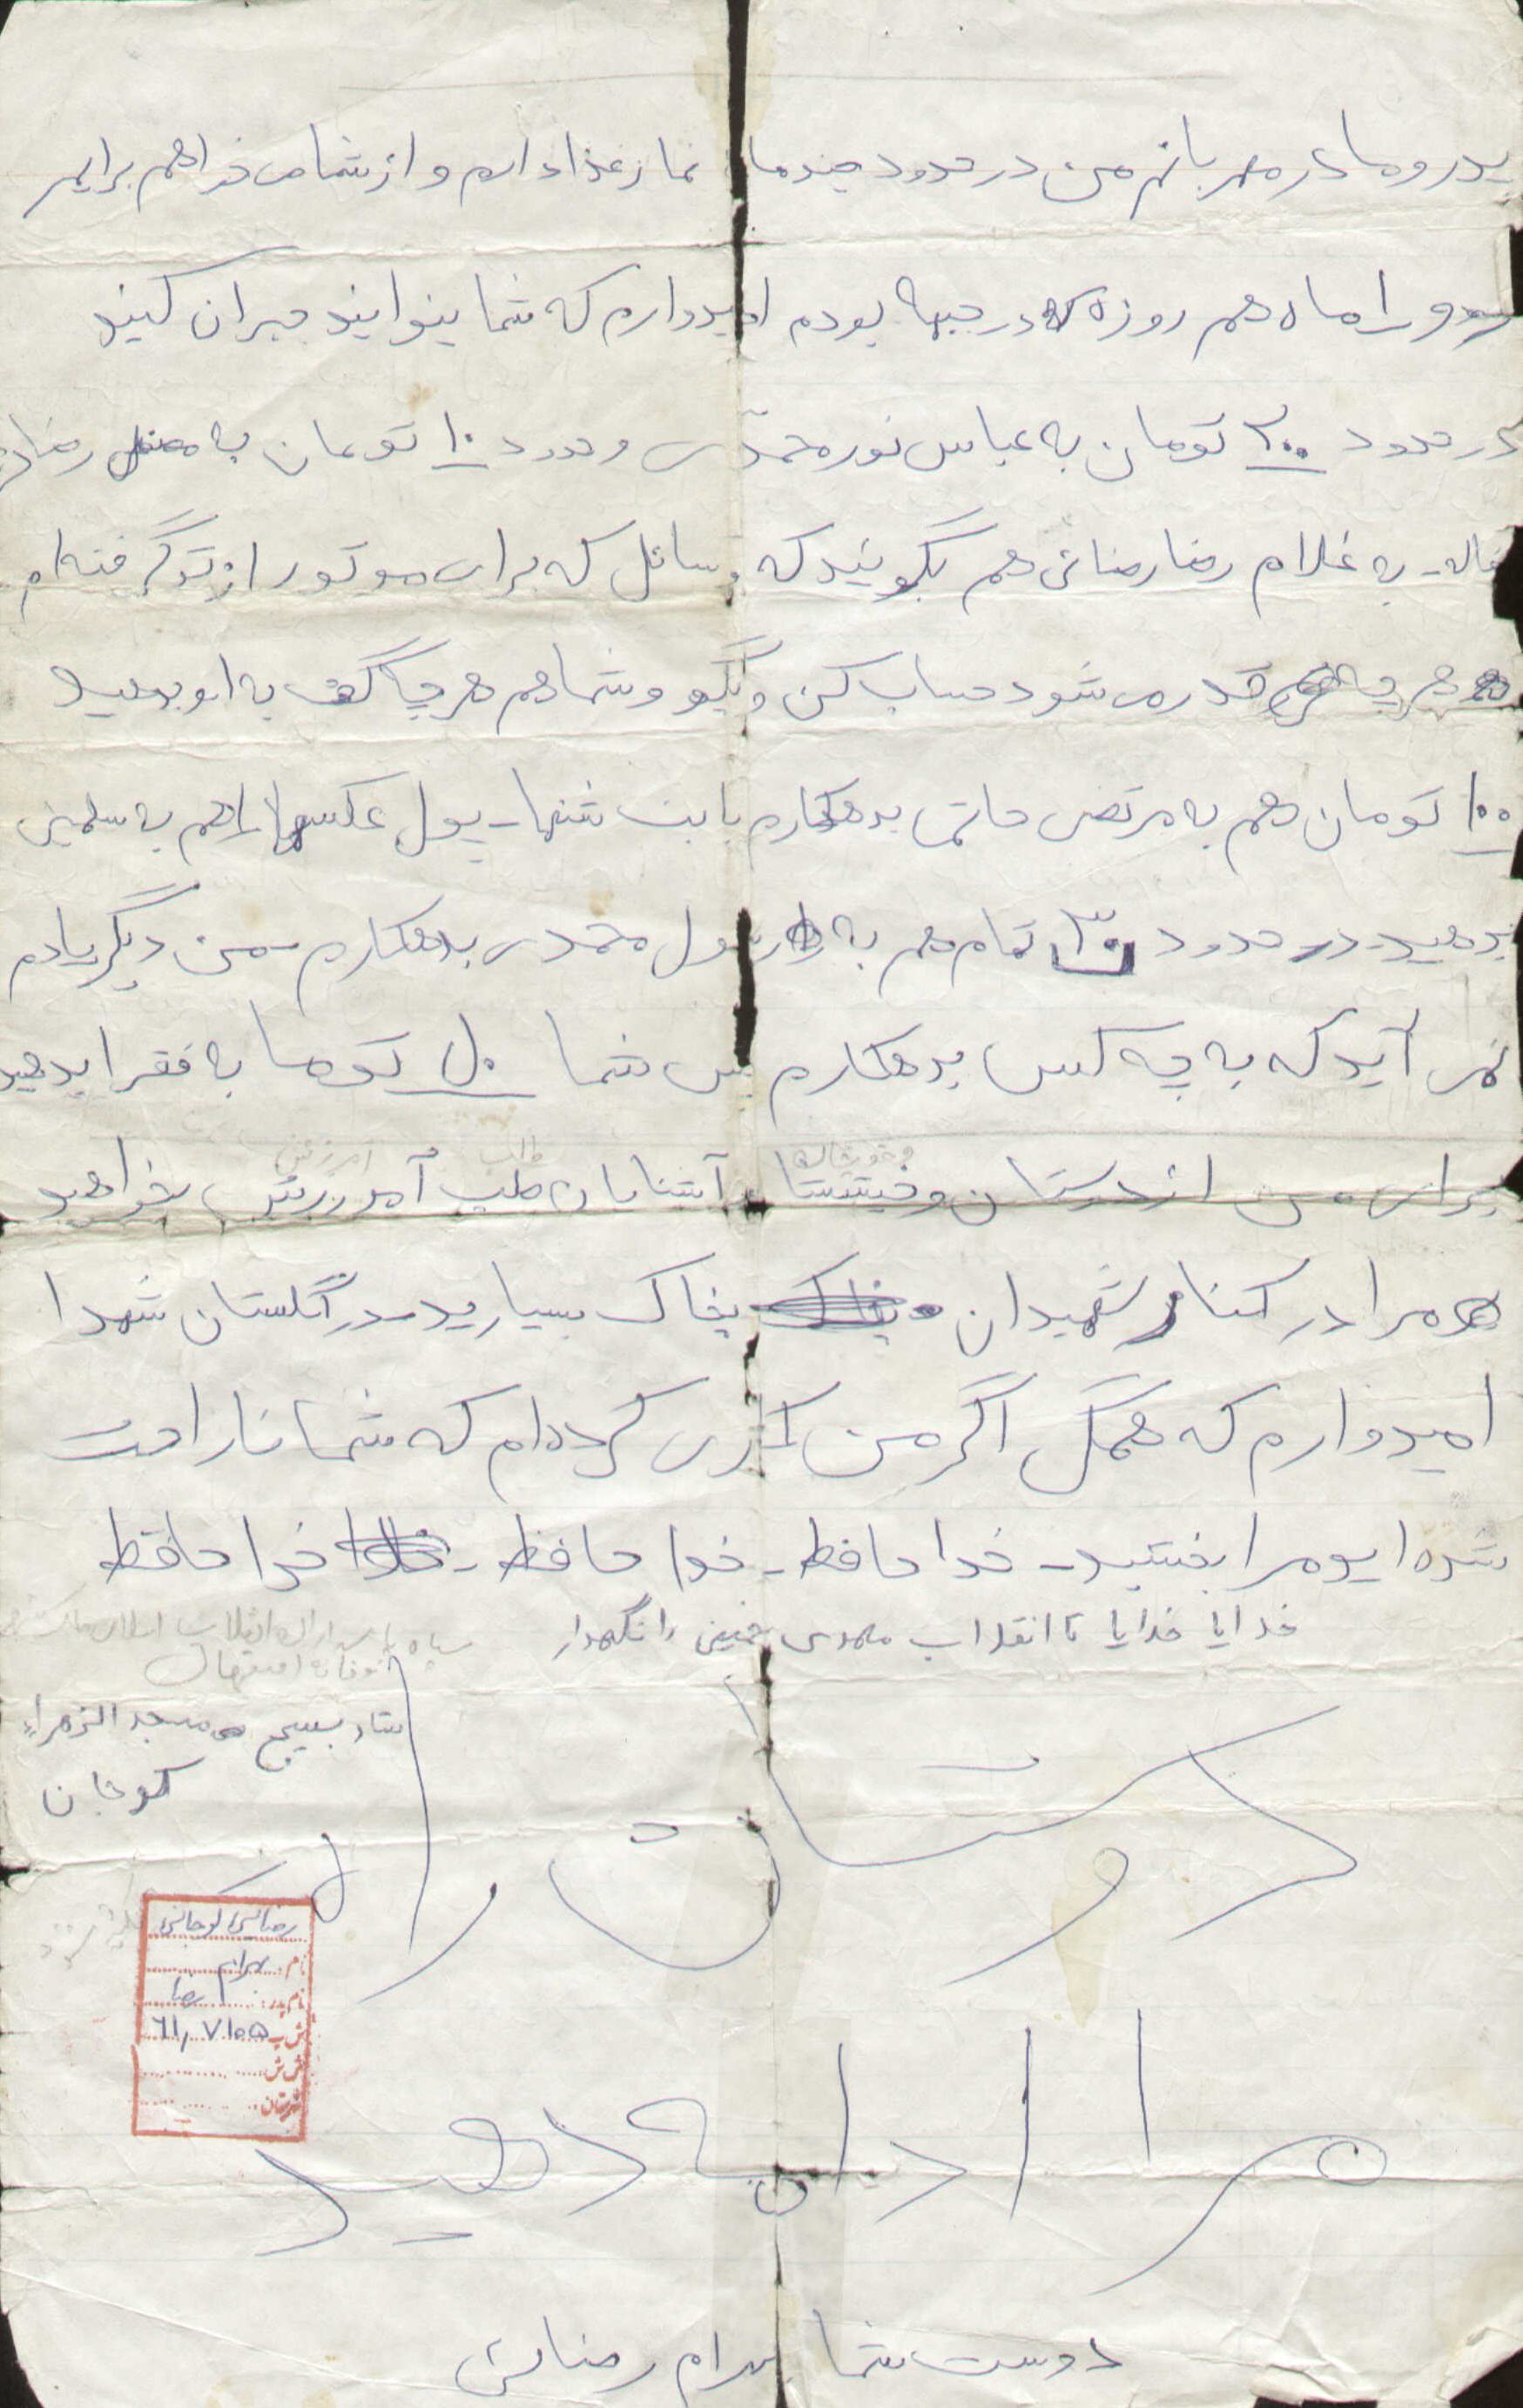 پدر و مادر مهربانم من در حدود چند ماه نماز غذا دارم و از شما می خواهم برایم
و را ماه هم روزه که در جبهه بودم امیدوارم که شما بتوانید جبران کنید
در حدود ۲۰۰ تومان به عباس نورمحمدی و حدود ۱۰ تومان به
خاله - به غلام رضا رضائی هم بگویند که وسائل که برای موتور از تو گرفته ام
هر چه قدر می شود حساب کن و بگو و شما هم هر چه گفت به او بدهید
۱۰۰ تومان هم به مرتضی حاتمی بدهکارم بابت - پول عکسها را هم به
بدهید در حدود ۳۰ تمام هم به رسول محمدی بدهکارم - من دیگر یادم
نمی آید که به چه کس بدهکارم پس شما توما به فقرا بدهید
و خویشان طلب آمرزش
برای من از دوستان و آشنایان طلب آمرزش بخواهید
مرا در کنار شهیدان بخاک بخاک بسپارید در گلستان شهدا
امیدوارم که همگی اگر من کاری کرده ام که شما ناراحت
شده اید مرا ببخشید - خدا حافظ - خدا حافظ - خدا خدا حافظ
خدایا خدایا تا انقلاب مهدی خمینی را نگهدار
سپاه پاسداران انقلاب اسلامی
اصفهان
ستاد بسیج مسجد الزهراء
کوجان
دوستان راه
مرا ادامه دهید
رضائی کوجانی
نام: بهرام
نام پدر: رضا
ش پ ۶۱٫۷۱۰۵
ش ش
شهرستان
دوست شما بهرام رضائی